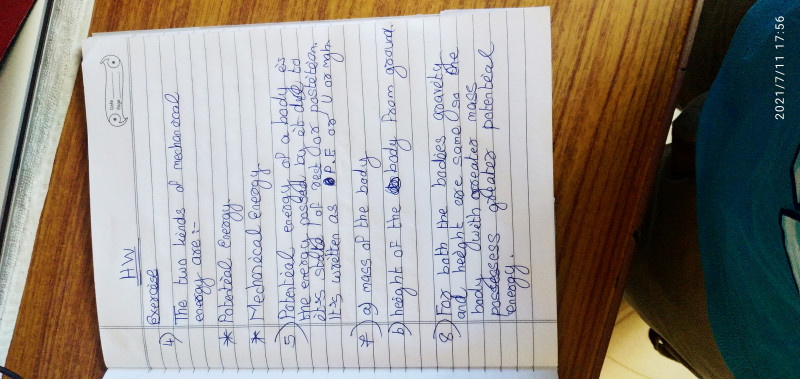 Date
Page
HW
Exercise
4) The two kinds of mechanical
energy are :-
* Potential Energy.
* Mechanical Energy.
5) Potential energy of a body is
the energy possed by it due to
it's state of rest or position.
It's written as P.E or U or mgh.
7) a) mass of the body
b) height of the body from ground.
8) For both the bodies gravity
and height are same so the
body with greater mass
possessess greater potential
energy.
2021/7/11 17:56